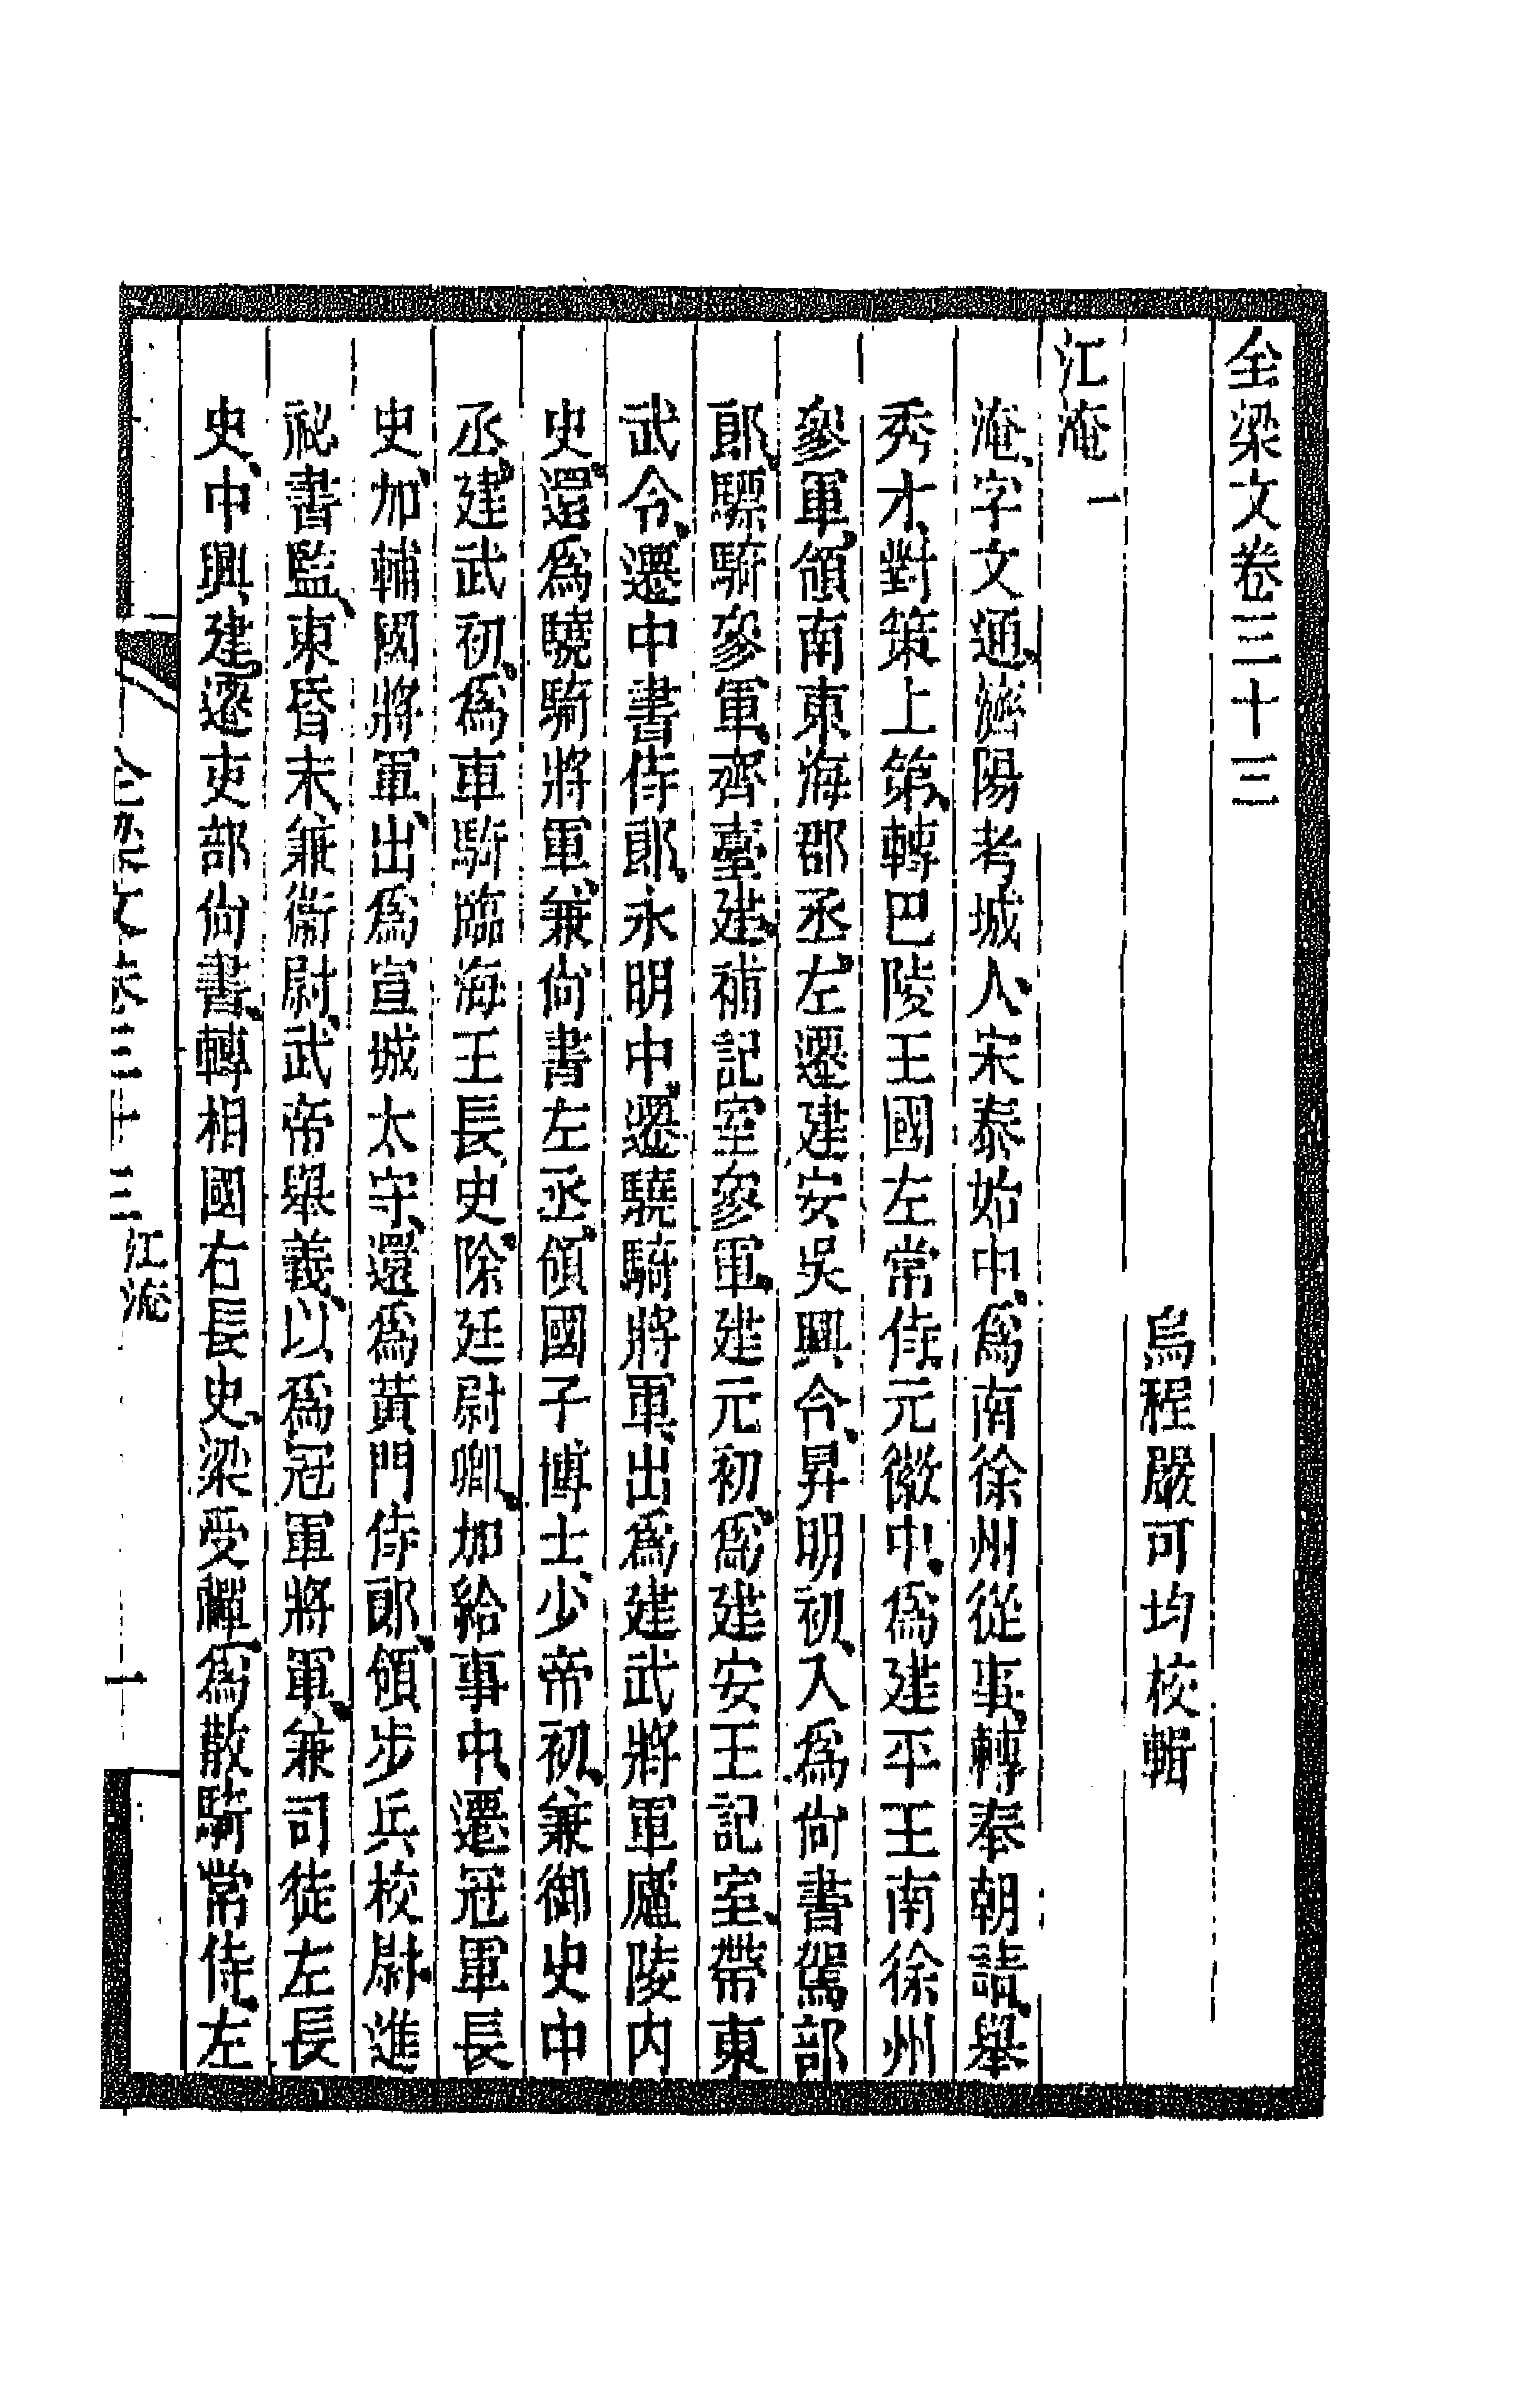 全梁文卷三十三
烏程嚴可均校輯
江淹一
淹、字文通、濟陽考城人、宋泰始中、爲南徐州從事、轉奉朝請、舉
秀才、對策上第、轉巴陵王國左常侍、元徽中、爲建平王南徐州
參軍、領南東海郡丞、左遷建安吳興令、昇明初、入爲尙書駕部
郎、驃騎參軍、齊臺建、補記室參軍、建元初、爲建安王記室、帶東
武令、遷中書侍郎、永明中、遷驍騎將軍、出爲建武將軍廬陵內
史、還爲驍騎將軍、兼尙書左丞、領國子博士、少帝初、兼御史中
丞、建武初、爲車騎臨海王長史、除廷尉卿、加給事中、遷冠軍長
史、加輔國將軍、出爲宣城太守、還爲黃門侍郎、領步兵校尉、進
祕書監、東昏末、兼衞尉、武帝舉義、以爲冠軍將軍、兼司徒左長
史、中興建、遷吏部尙書、轉相國右長史、梁受禪、爲散騎常侍、左
全梁文卷三十三 江淹 一